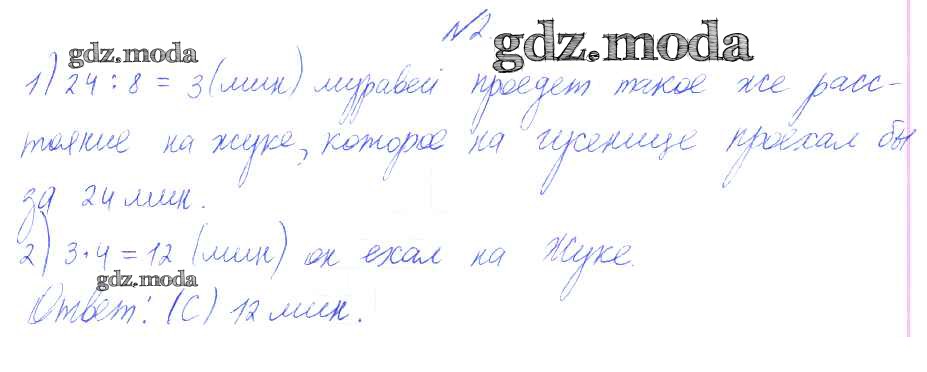 №2.
gdz.moda
gdz.moda
1) 24 : 8 = 3 (мин) муравей проедет такое же расс-
тояние на жуке, которое на гусенице проехал бы
за 24 мин.
2) 3·4 = 12 (мин) он ехал на жуке.
gdz.moda
Ответ: (С) 12 мин.